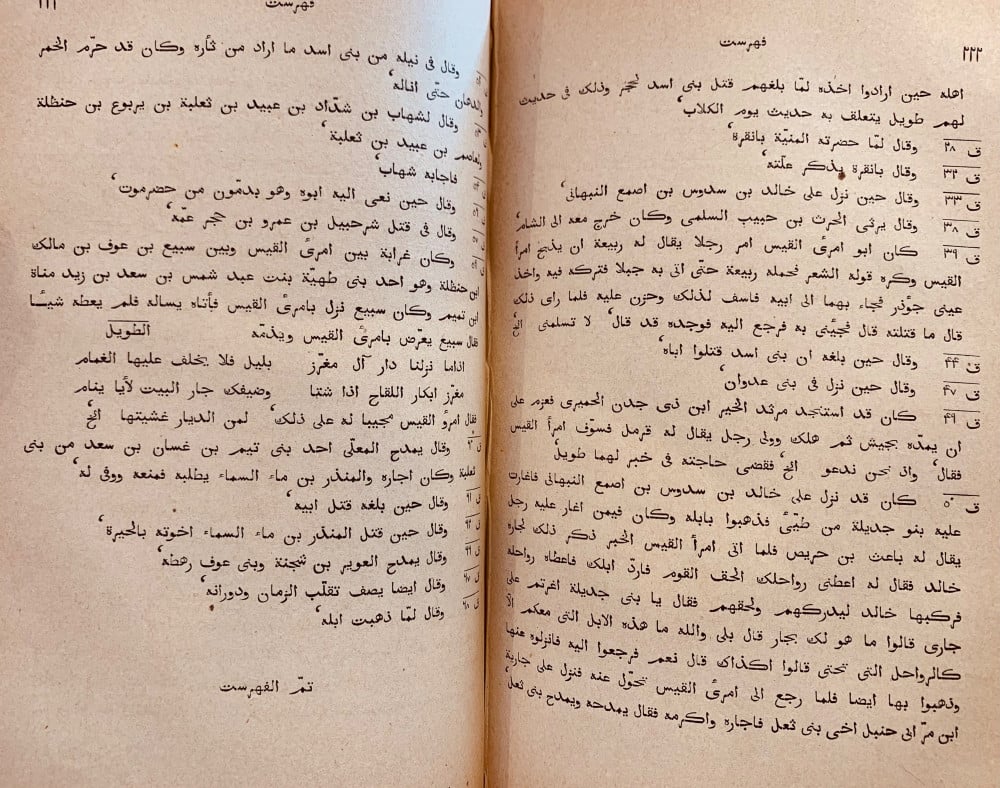 فهرست
٢٢٢
اهله حين ارادوا اخذه لمّا بلغهم قتل بنى اسد لحجر وذلك فى حديث
لهم طويل يتعلف به حديث يوم الكلاب،
ق ٢٨ وقال لمّا حضرته المنيّة بانقرة،
ق ٣٢ وقال بانقرة يذكر علّته،
ق ٣٣ وقال حين نزل على خالد بن سدوس بن اصمع النبهانى،
ق ٣٨ وقال يرثى الحرث بن حبيب السلمى وكان خرج معه الى الشام،
ق ٣٩ كان ابو امرئ القيس امر رجلا يقال له ربيعة ان يذبح امرأ
القيس وكره قوله الشعر فحمله ربيعة حتّى اتى به جبلا فتركه فيه واخذ
عينى جوذر فجاء بهما الى ابيه فاسف لذلك وحزن عليه فلما راى ذلك
قال ما قتلته قال فجئنى به فرجع اليه فوجده قد قال، لا تسلمنى الخ
ق ۴۴ وقال حين بلغه ان بنى اسد قتلوا اباه،
ق ۴٧ وقال حين نزل فى بنى عدوان،
ق ۴٩ كان قد استنجد مرثد الخير ابن ذى جدن الحميرى فعزم على
ان يمدّه بجيش ثم هلك وولى رجل يقال له قرمل فسوف امرأ القيس
فقال، واذ نحن ندعو الخ، فقضى حاجته فى خبر لهما طويل،
ق ٥٠ كان قد نزل على خالد بن سدوس بن اصمع النبهانى فاغارت
عليه بنو جديلة من طيّئ فذهبوا بابله وكان فيمن اغار عليه رجل
يقال له باعث بن حريص فلما اتى امرأ القيس الخبر ذكر ذلك لجاره
خالد فقال له اعطنى رواحلك الحف القوم فاردّ ابلك فاعطاه رواحله
فركبها خالد ليدركهم ولحقهم فقال يا بنى جديلة اغرتم على
جارى قالوا ما هو لك بجار قال بلى والله ما هذه الابل التى معكم الّا
كالرواحل التى تحتى قالوا اكذاك قال نعم فرجعوا اليه فانزلوه عنها
وذهبوا بها ايضا فلما رجع الى امرئ القيس تحوّل عنه فنزل على جارية
ابن مرّ ابى حنبل اخى بنى ثعل فاجاره واكرمه فقال يمدحه ويمدح بنى ثعل،
فهرست
وقال فى نيله من بنى اسد ما اراد من ثأره وكان قد حرّم الخمر
والدهان حتّى اناله،
وقال لشهاب بن شدّاد بن عبيد بن ثعلبة بن يربوع بن حنظلة
ولعاصم بن عبيد بن ثعلبة،
فاجابه شهاب،
وقال حين نعى اليه ابوه وهو بدمّون من حضرموت،
وقال فى قتل شرحبيل بن عمرو بن حجر عمّه،
وكان غرابة بين امرئ القيس وبين سبيع بن عوف بن مالك
ابن حنظلة وهو احد بنى طهيّة بنت عبد شمس بن سعد بن زيد مناة
ابن تميم وكان سبيع نزل بامرئ القيس فأتاه يسأله فلم يعطه شيئًا
فقال سبيع يعرّض بامرئ القيس ويذمّه الطويل
اذاما نزلنا دار آل مغرّز بليد فلا يخلف عليها الغمام
مغرّز ابكار اللقاح اذا شتا وضيفك جار البيت لأيا ينام
فقال امرؤ القيس مجيبا له على ذلك، لمن الديار غشيتها الخ،
وقال يمدح المعلّى احد بنى تيم بن غسان بن سعد من بنى
ثعلبة وكان اجاره والمنذر بن ماء السماء يطلبه فمنعه ووفى له،
ق ٦١ وقال حين بلغه قتل ابيه،
ق ٦٢ وقال حين قتل المنذر بن ماء السماء اخوته بالحيرة،
وقال يمدح العوير بن شجنة وبنى عوف رهطه،
وقال ايضا يصف تقلّب الزمان ودورانه،
وقال لمّا ذهبت ابله،
تمّ الفهرست